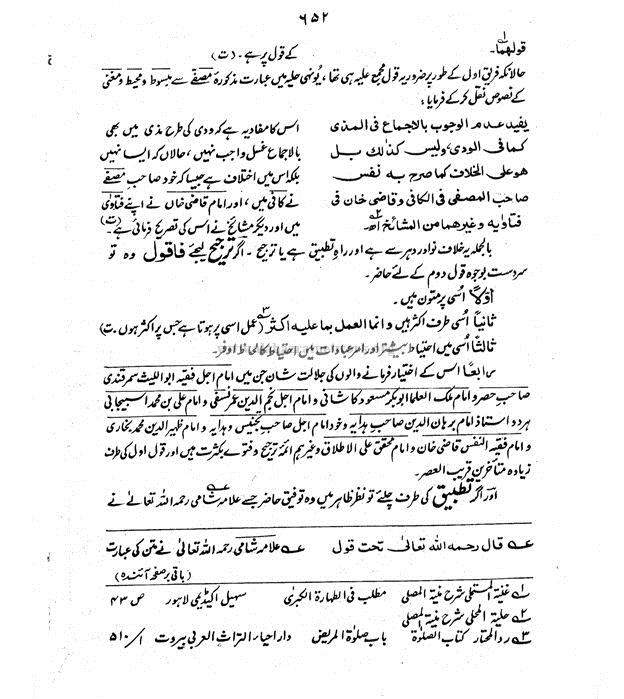 ۶۵۲
قولھما۱۔ کے قول پر ہے۔ (ت)
حالانکہ فریق اول کے طور پر ضرور یہ قول مجمع علیہ ہی تھا، یونہی حلیہ میں عبارت مذکورہ مصفے سے مبسوط و محیط و مغنی
کے نصوص نقل کرکے فرمایا:
یفید عدم الوجوب بالاجماع فی المذی اس کا مفاد یہ ہے کہ ودی کی طرح مذی میں بھی
کما فی الودی ولیس کذالک بل بالاجماع غسل واجب نہیں، حالاں کہ ایسا نہیں
ھو علی الخلاف کما صرح بہ نفس بلکہ اس میں اختلاف ہے جیسا کہ خود صاحبِ مصفے
صاحب المصفی فی الکافی وقاضی خان فی نے کافی میں، اور امام قاضی خاں نے اپنے فتاوٰی
فتاویہ وغیرھما من المشائخ اھ۲ میں اور دیگر مشائخ نے اس کی تصریح فرمائی ہے۔ (ت)
بالجملہ یہ خلاف نوادر دہر سے ہے اور راہِ تطبیق ہے یا ترجیح۔ اگر ترجیح لیجئے فاقول وہ تو
سردست بوجوہ قول دوم کے لئے حاضر۔
اوّلاً اُسی پر متون ہیں۔
ثانیاً اُسی طرف اکثر ہیں وانما العمل بما علیہ اکثر۳ (عمل اسی پر ہوتا ہے جس پر اکثر ہوں۔ ت)
ثالثاً اُسی میں احتیاط بیشتر اور امر عبادات میں احتیاط کا لحاظ اوفر۔
رابعاً اس کے اختیار فرمانے والوں کی جلالت شان جن میں امام اجل فقیہ ابو اللیث سمرقندی
صاحب حصر و امام ملک العلما ابوبکر مسعود کاشانی و امام اجل نجم الدین عمر نسفی و امام علی بن محمد اسبیجابی
ہر دو استاذ امام برہان الدین صاحب ہدایہ و خود امام اجل صاحب تجنیس و ہدایہ و امام ظہیر الدین محمد بخاری
و امام فقیہ النفس قاضی خان و امام محقق علی الاطلاق وغیرہم ائمہ ترجیح و فتوے بکثرت ہیں اور قول اول کی طرف
زیادہ متاخرین قریب العصر۔
اور اگر تطبیق کی طرف چلئے تو نظر ظاہر میں وہ توفیق حاضر جسے علامہ شامی رحمہ اللہ تعالٰی نے
عہ قال رحمہ اللہ تعالٰی تحت قول عہ علامہ شامی رحمہ اللہ تعالٰی نے متن کی عبارت
(باقی بر صفحہ آئندہ)
۱؎ غنیۃ المستملی شرح منیۃ المصلی مطلب فی الطہارۃ الکبرٰی سہیل اکیڈیمی لاہور ص ۴۳
۲؎ حلیۃ المحلی شرح منیۃ المصلی
۳؎ ردالمحتار کتاب الصلوٰۃ باب صلوٰۃ المریض داراحیاء التراث العربی بیروت ۱/۵۱۰